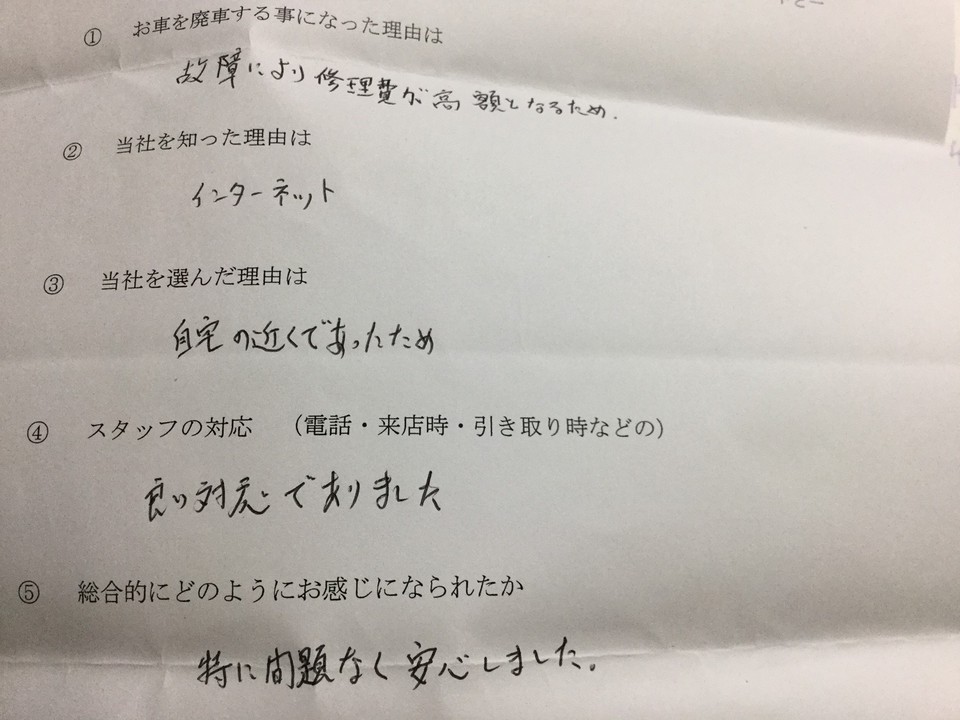 ① お車を廃車する事になった理由は
故障により修理費が高額となるため.
② 当社を知った理由は
インターネット
③ 当社を選んだ理由は
自宅の近くであったため
④ スタッフの対応 （電話・来店時・引き取り時などの）
良い対応でありました
⑤ 総合的にどのようにお感じになられたか
特に問題なく安心しました。